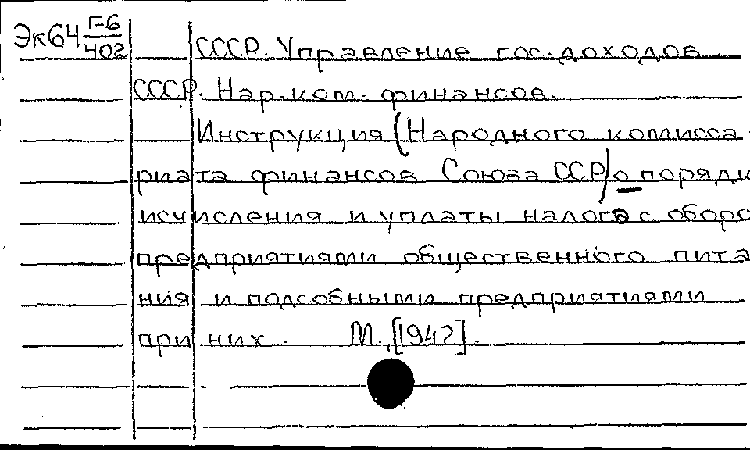 Эк64 Г-6/402
СССР. Управление гос. доходов
СССР. Нар. ком. финансов.
Инструкция (Народного комисса-
риата финансов Союза ССР) о поряди
исчисления и уплаты налога с оборо
предприятиями общественного пита
ния и подсобными предприятиями
при них. М., [194?].